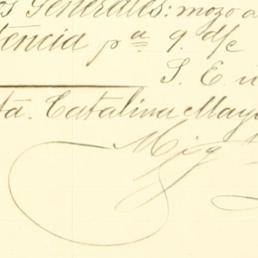 os Generales: mozo a
tencia pª q. dfc
S. E. ú
ta. Catalina Mayo
Mig